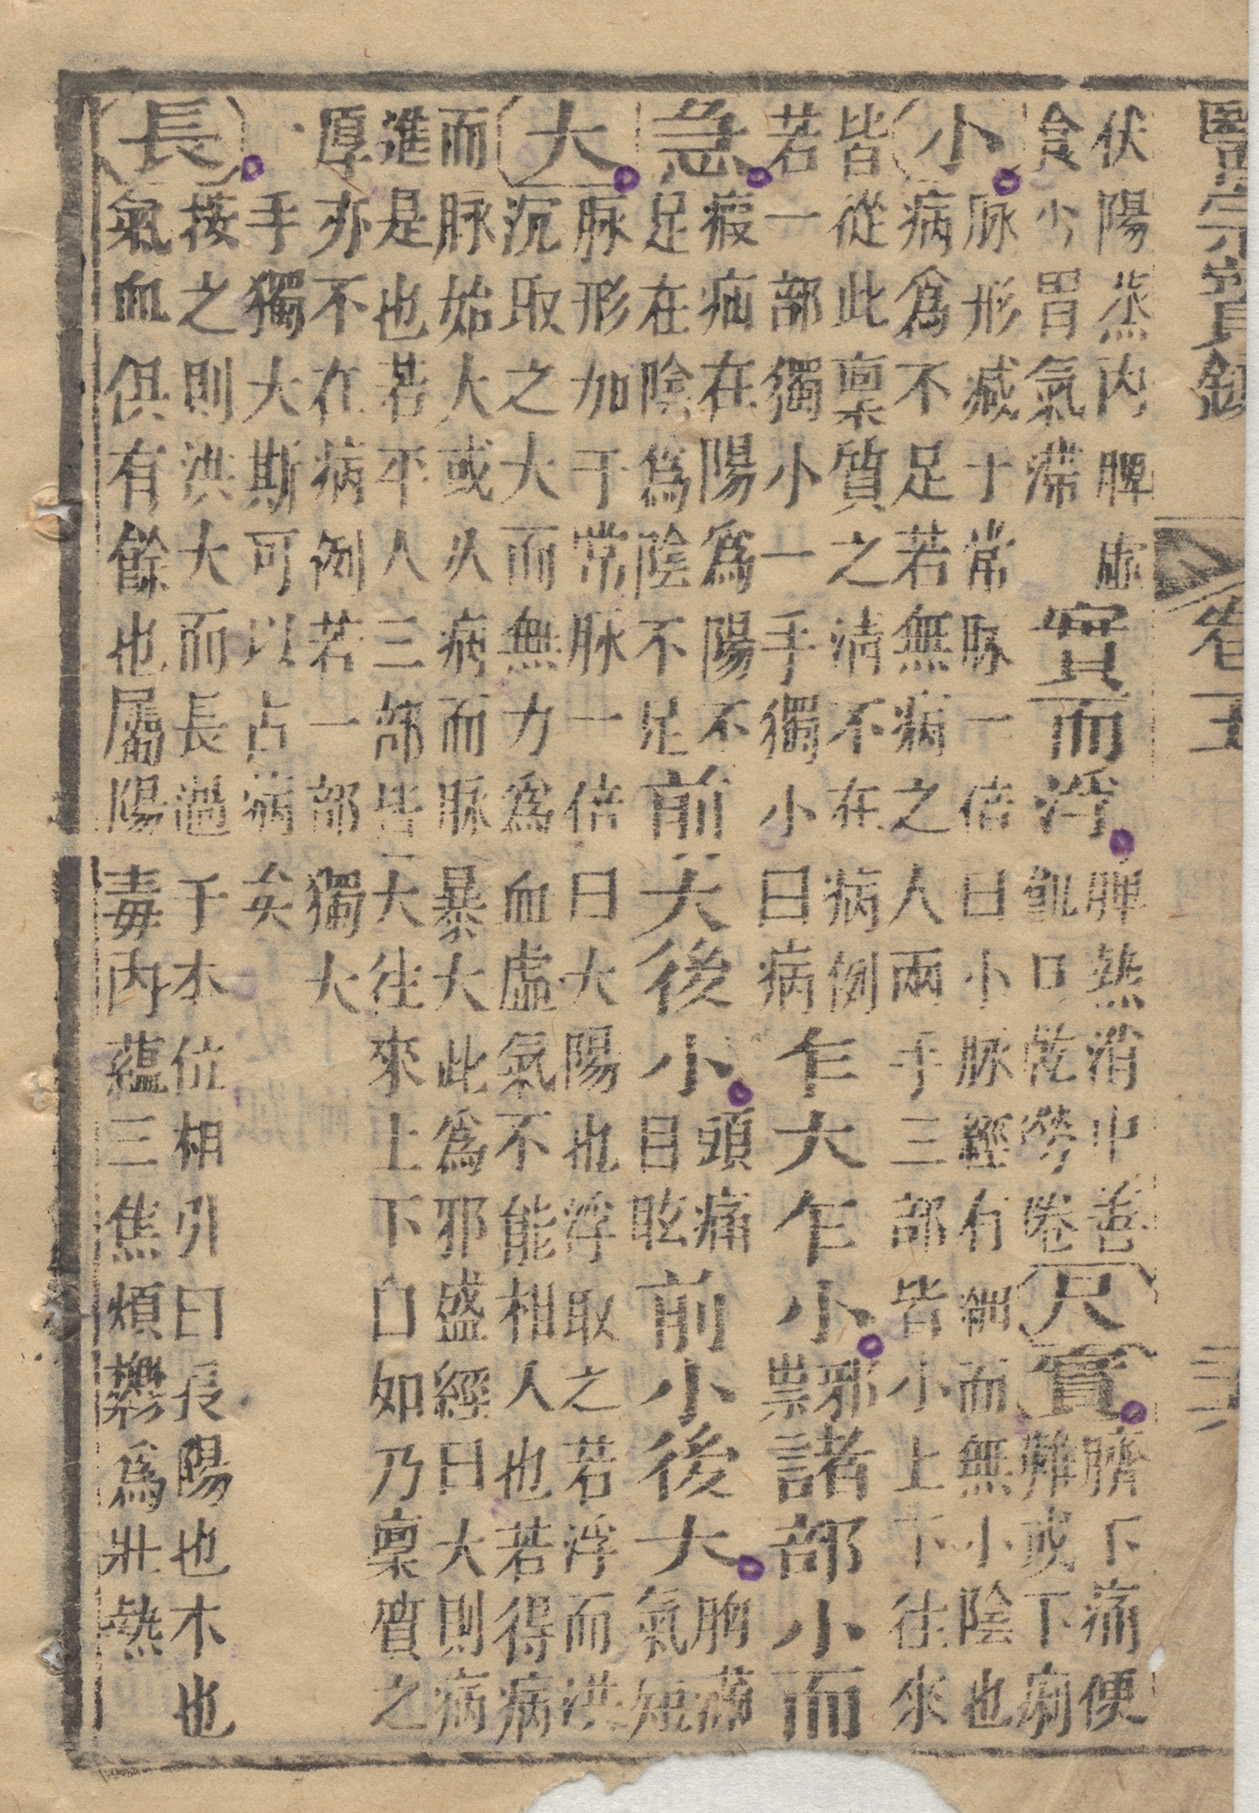 醫宗寶鏡
卷
三六
伏陽蒸内脾虛
食少胃氣滯
實而浮
脾熱消中善
飢口乾勞倦
尺實
臍下痛便
難或下痢
小
脉形减于常脉一倍曰小脉經有細而無小陰也
病爲不足若無病之人兩手三部皆小上下往來
皆從此禀質之清不在病例
若一部獨小一手獨小曰病
乍大乍小
邪
祟
諸部小而
急
瘕疝在陽爲陽不
足在陰爲陰不足
前大後小
頭痛
目眩
前小後大
胸滿
氣短
大
脉形加于常脉一倍曰大陽也浮取之若浮而洪
沉取之大而無力爲血虛氣不能相人也若得病
而脉始大或久病而脉暴大此爲邪盛經曰大則病
進是也若平人三部皆大往來上下自如乃禀質之
厚亦不在病例若一部獨大
手獨大斯可以占病矣
長
按之則洪大而長過于本位相引曰長陽也木也
氣血俱有餘也屬陽毒内蘊三焦煩鬱爲壯熱